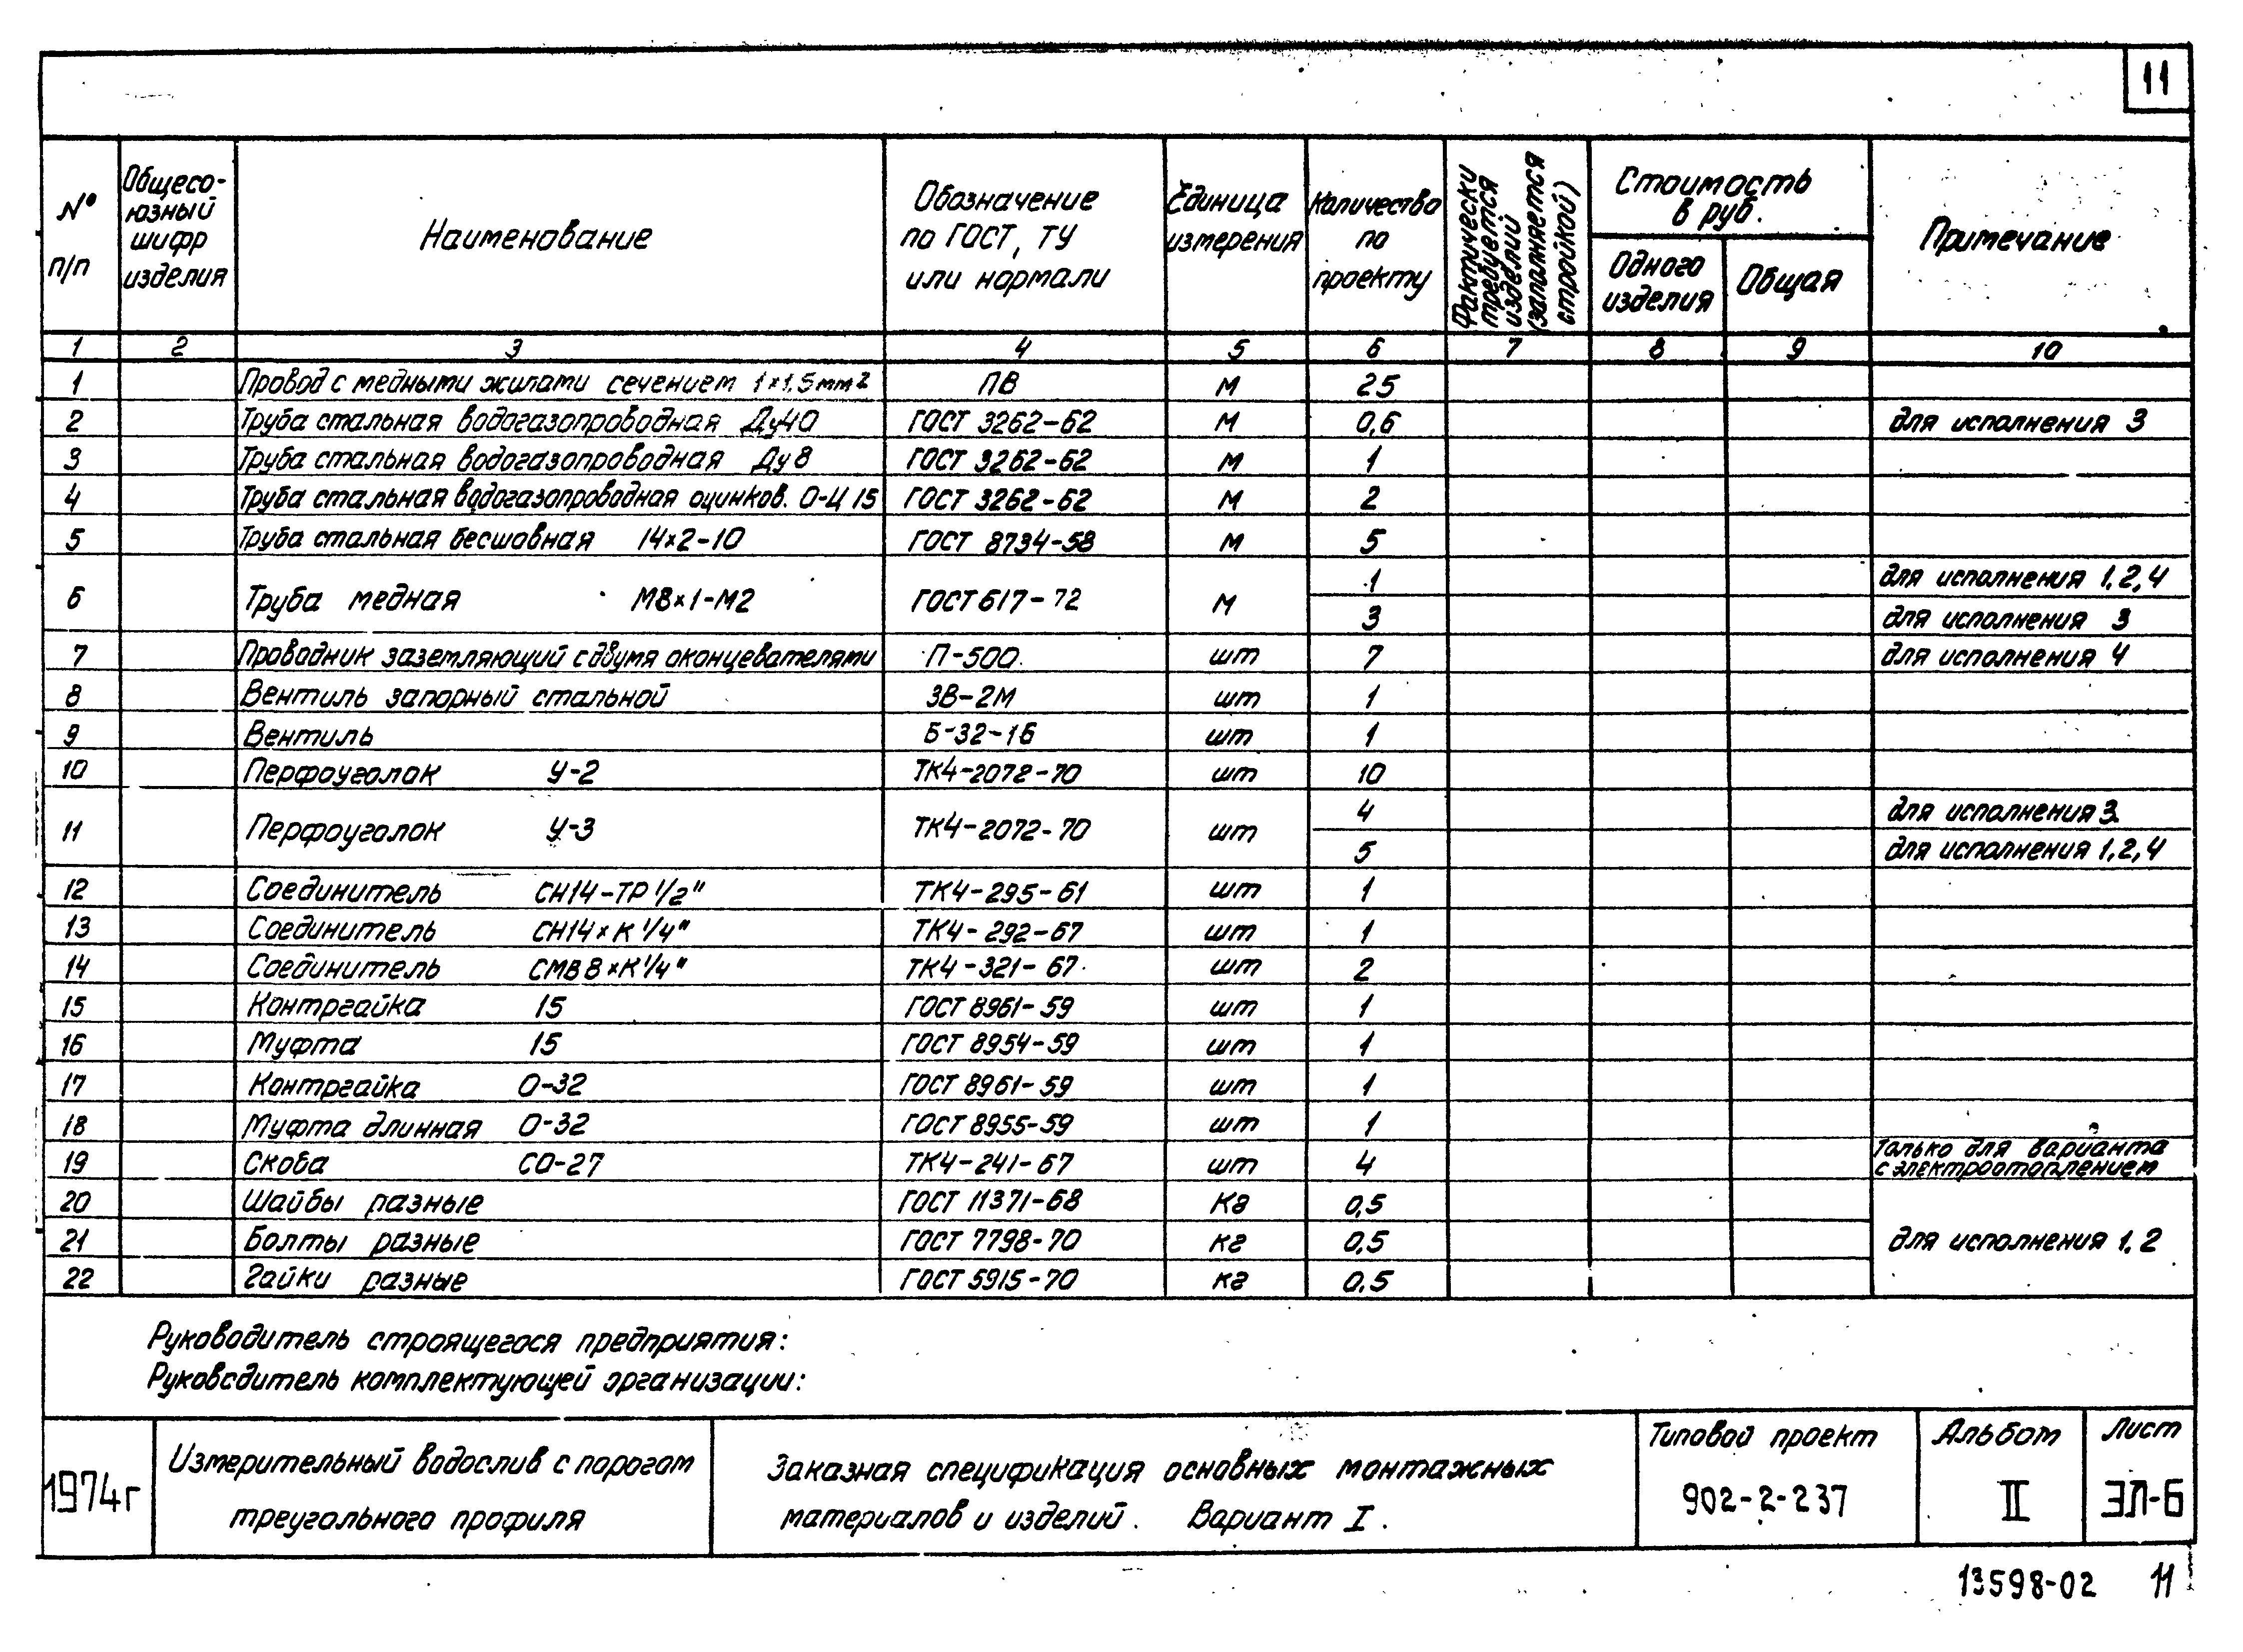 11
№ п/п
Общесо-
юзный
шифр
изделия
Наименование
Обозначение
по ГОСТ, ТУ
или нормали
Единица
измерения
Количество
по
проекту
Фактически
требуется
изделий
(заполняется
стройкой)
Стоимость
в руб.
Одного
изделия
Общая
Примечание
1 2 3 4 5 6 7 8 9 10
1 Провод с медными жилами сечением 1×1.5мм² ПВ м 25
2 Труба стальная водогазопроводная Ду40 ГОСТ 3262-62 м 0,6 для исполнения 3
3 Труба стальная водогазопроводная Ду8 ГОСТ 3262-62 м 1
4 Труба стальная водогазопроводная оцинков. О-Ц 15 ГОСТ 3262-62 м 2
5 Труба стальная бесшовная 14×2-10 ГОСТ 8734-58 м 5
6 Труба медная М8×1-М2 ГОСТ 617-72 м 1 для исполнения 1,2,4
3 для исполнения 3
7 Проводник заземляющий с двумя оконцевателями П-500 шт 7 для исполнения 4
8 Вентиль запорный стальной ЗВ-2М шт 1
9 Вентиль Б-32-1б шт 1
10 Перфоуголок У-2 ТК4-2072-70 шт 10
11 Перфоуголок У-3 ТК4-2072-70 шт 4 для исполнения 3
5 для исполнения 1,2,4
12 Соединитель СН14-ТР 1/2" ТК4-295-61 шт 1
13 Соединитель СН14×К 1/4" ТК4-292-67 шт 1
14 Соединитель СМВ8×К1/4" ТК4-321-67 шт 2
15 Контргайка 15 ГОСТ 8961-59 шт 1
16 Муфта 15 ГОСТ 8954-59 шт 1
17 Контргайка О-32 ГОСТ 8961-59 шт 1
18 Муфта длинная О-32 ГОСТ 8955-59 шт 1
19 Скоба СО-27 ТК4-241-67 шт 4 только для варианта
с электроотоплением
20 Шайбы разные ГОСТ 11371-68 кг 0,5
21 Болты разные ГОСТ 7798-70 кг 0,5 для исполнения 1,2
22 Гайки разные ГОСТ 5915-70 кг 0,5
Руководитель строящегося предприятия:
Руководитель комплектующей организации:
1974г
Измерительный водослив с порогом
треугольного профиля
Заказная спецификация основных монтажных
материалов и изделий. Вариант I.
Типовой проект
902-2-237
Альбом
II
Лист
ЭЛ-6
13598-02 11